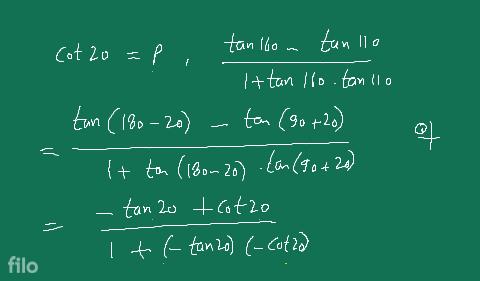 cot 20 = p , (tan 160 - tan 110) / (1 + tan 160 . tan 110)
= (tan (180 - 20) - tan (90 + 20)) / (1 + tan (180 - 20) . tan (90 + 20))
= (- tan 20 + cot 20) / (1 + (- tan 20) (- cot 20))
filo